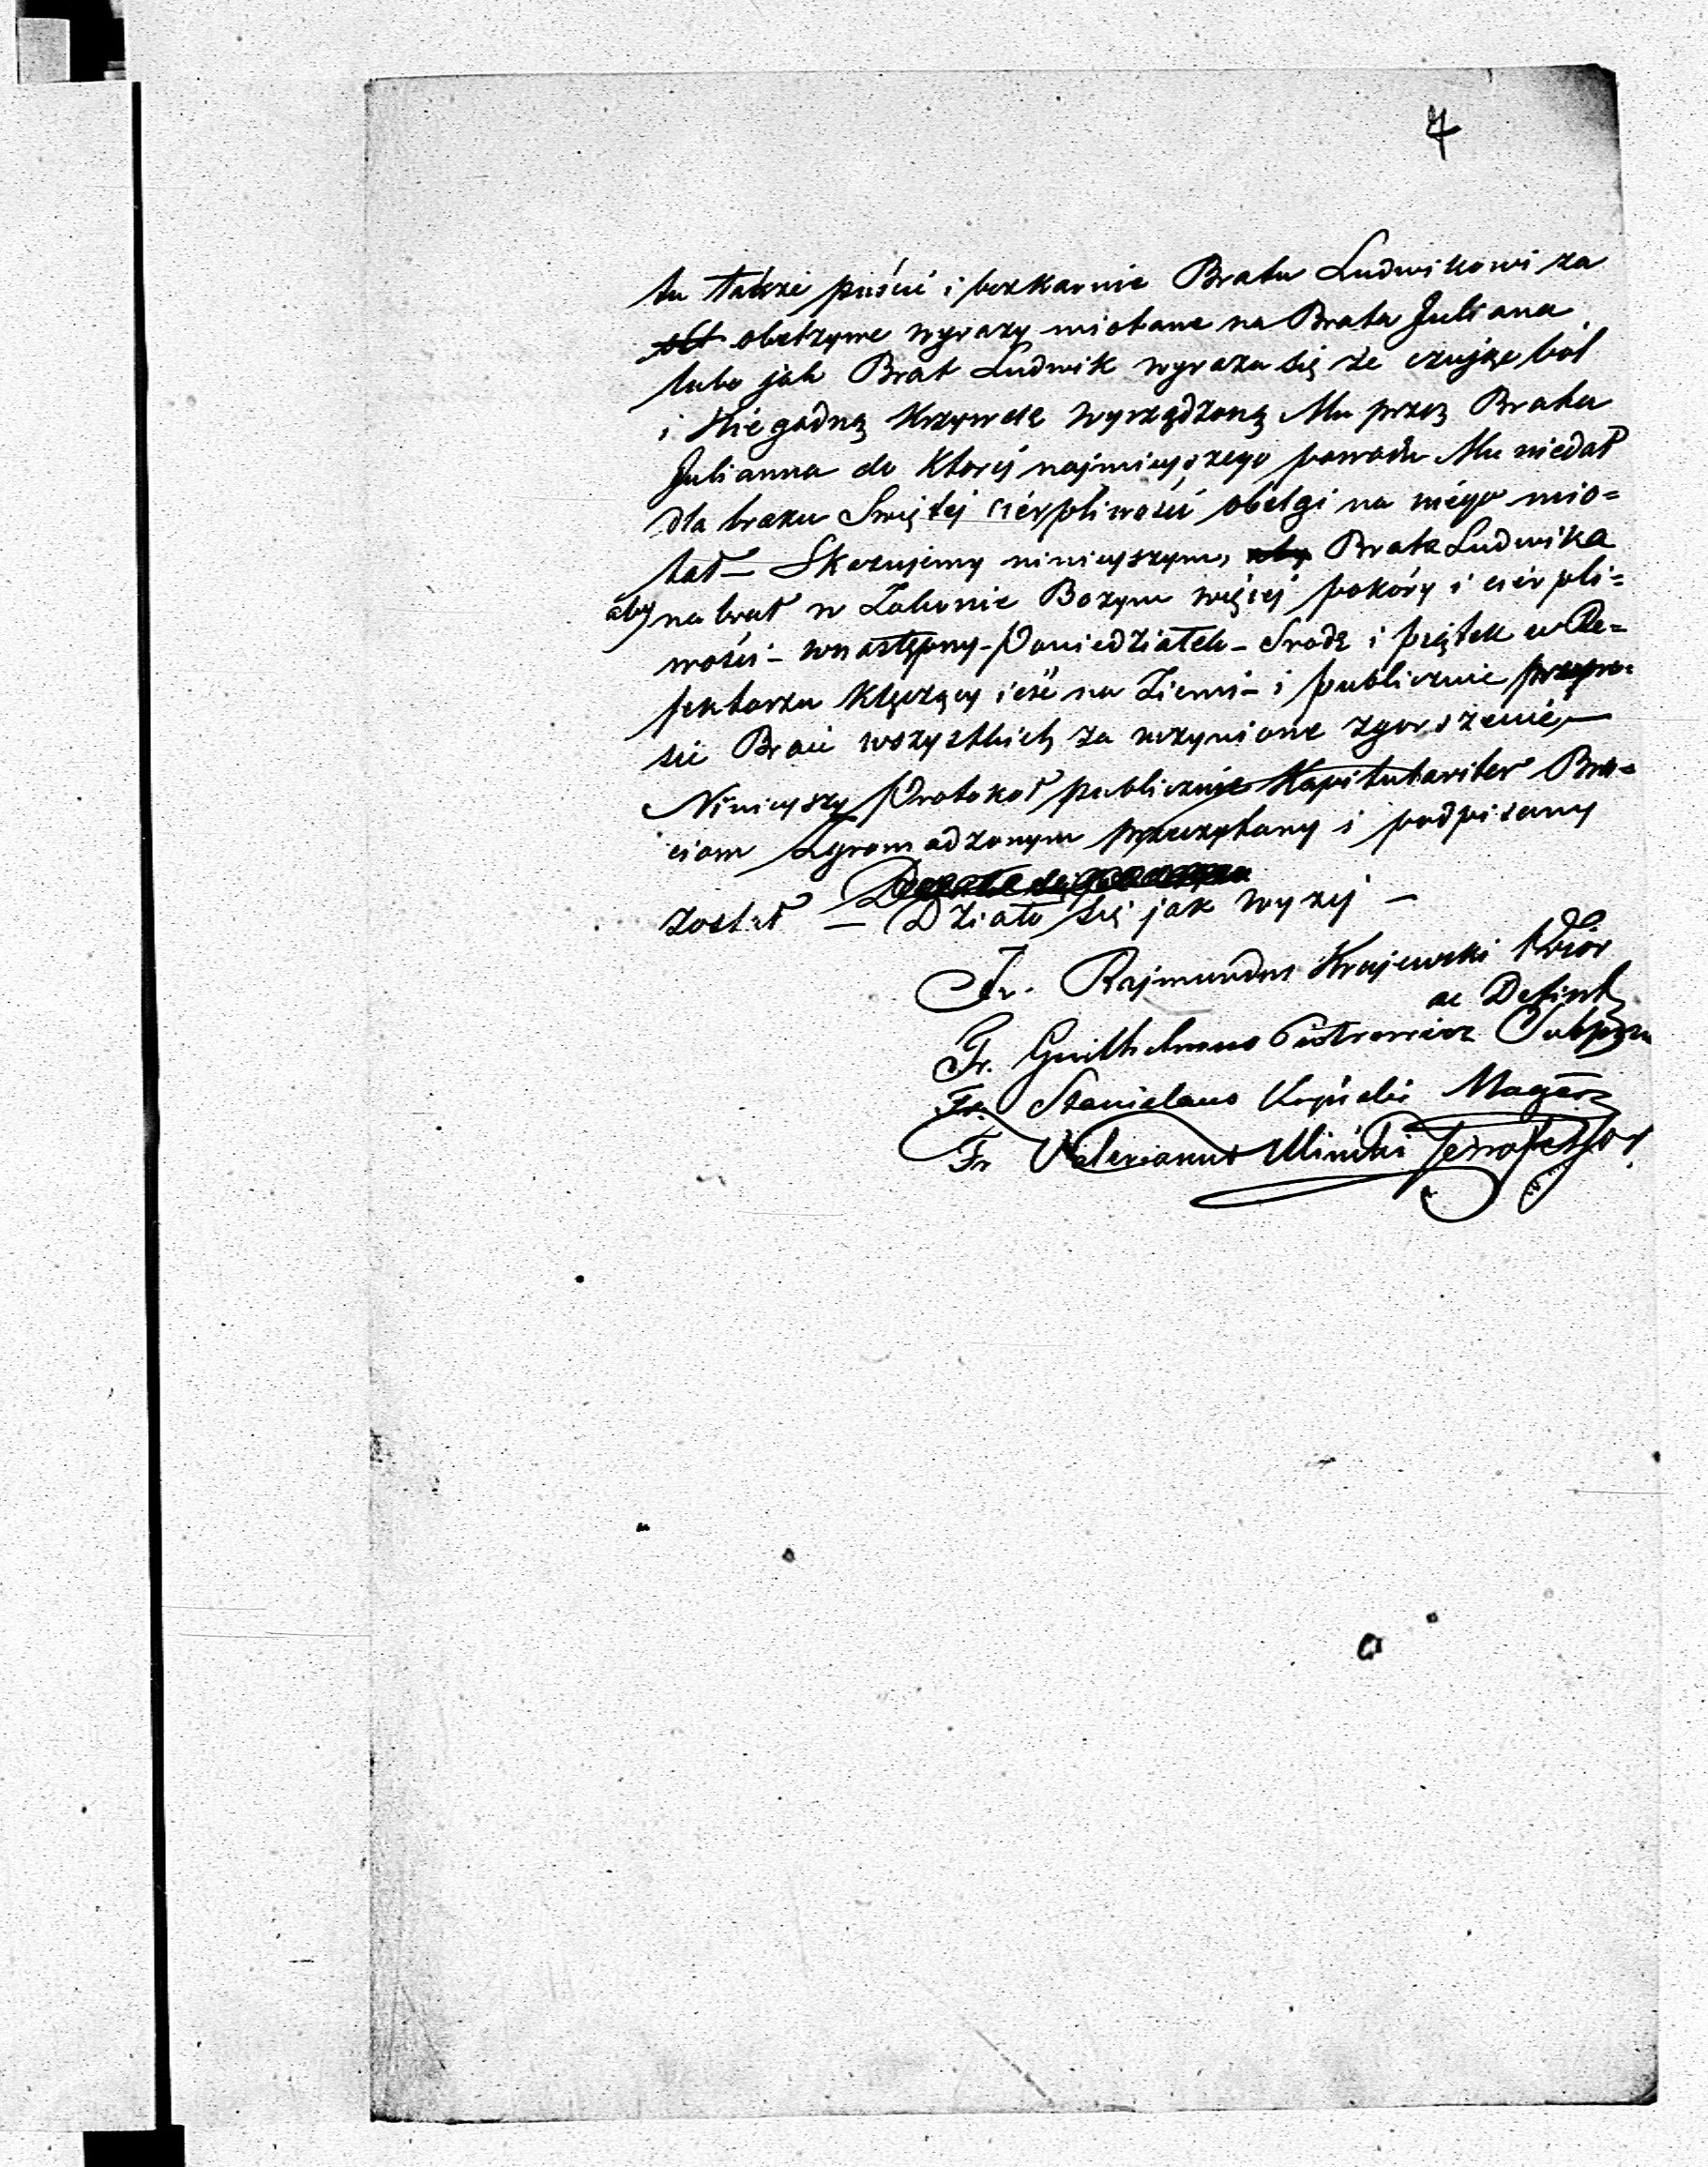 7
tu także puścić i bezkarnie Bratu Ludwikowi za
obelżywe wyrazy miotane na Brata Juliana
lubo jak Brat Ludwik wyraża się że czując ból
i Niegodną Krzywdę wyrządzoną Mu przez Brata
Julianna do Ktorej najmnieyszego powodu Mu niedał
dla braku Swiętej cierpliwości obelgi na niego mio=
tał – Skazujemy ninieyszym, aby Brata Ludwika
aby nabrał w Zakonie Bożym więcej pokóry i cierpli=
wości – wnastępny – Poniedziałek – Srodę i piątek w Re=
fektarzu Klęczący ieść na Ziemi – i publicznie przepro=
sić Braci wszystkich za uczynione zgorszenie –
Ninieyszy Protokoł publicznie Kapitulariter Bra=
ciom Zgromadzonym przeczytany i podpisany
został – Działo się jak wyżej –
Fr. Rajmundus Krajewski Prior
ac Definit
Fr. Guilhelmus Pietrowicz Subprzr
Fr. Stanislaus Magēr
Fr Valerianus Miński